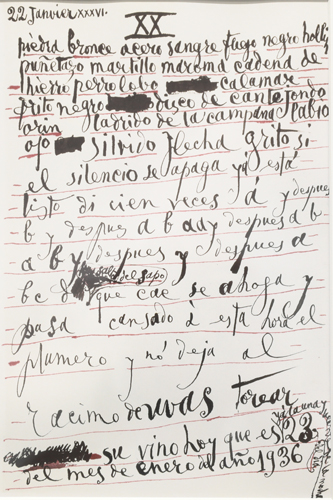 22 Janvier XXXVI.
XX
piedra bronce acero sangre fuego negro
puñetazo martillo maroma cadena de
hierro perro lobo calamar
grito negro disco de cante jondo
ladrido de la campana labio
ojo silvido flecha grito si
el silencio se apaga ya está
listo di cien veces á y despues
b y despues a b a y despues a b
a b y despues y despues a
b c del sapo que cae se ahoga y
pasa cansado á esta hora el
plumero y nó deja al
racimo de uvas torear
su vino hoy que es 23
del mes de enero del año 1936